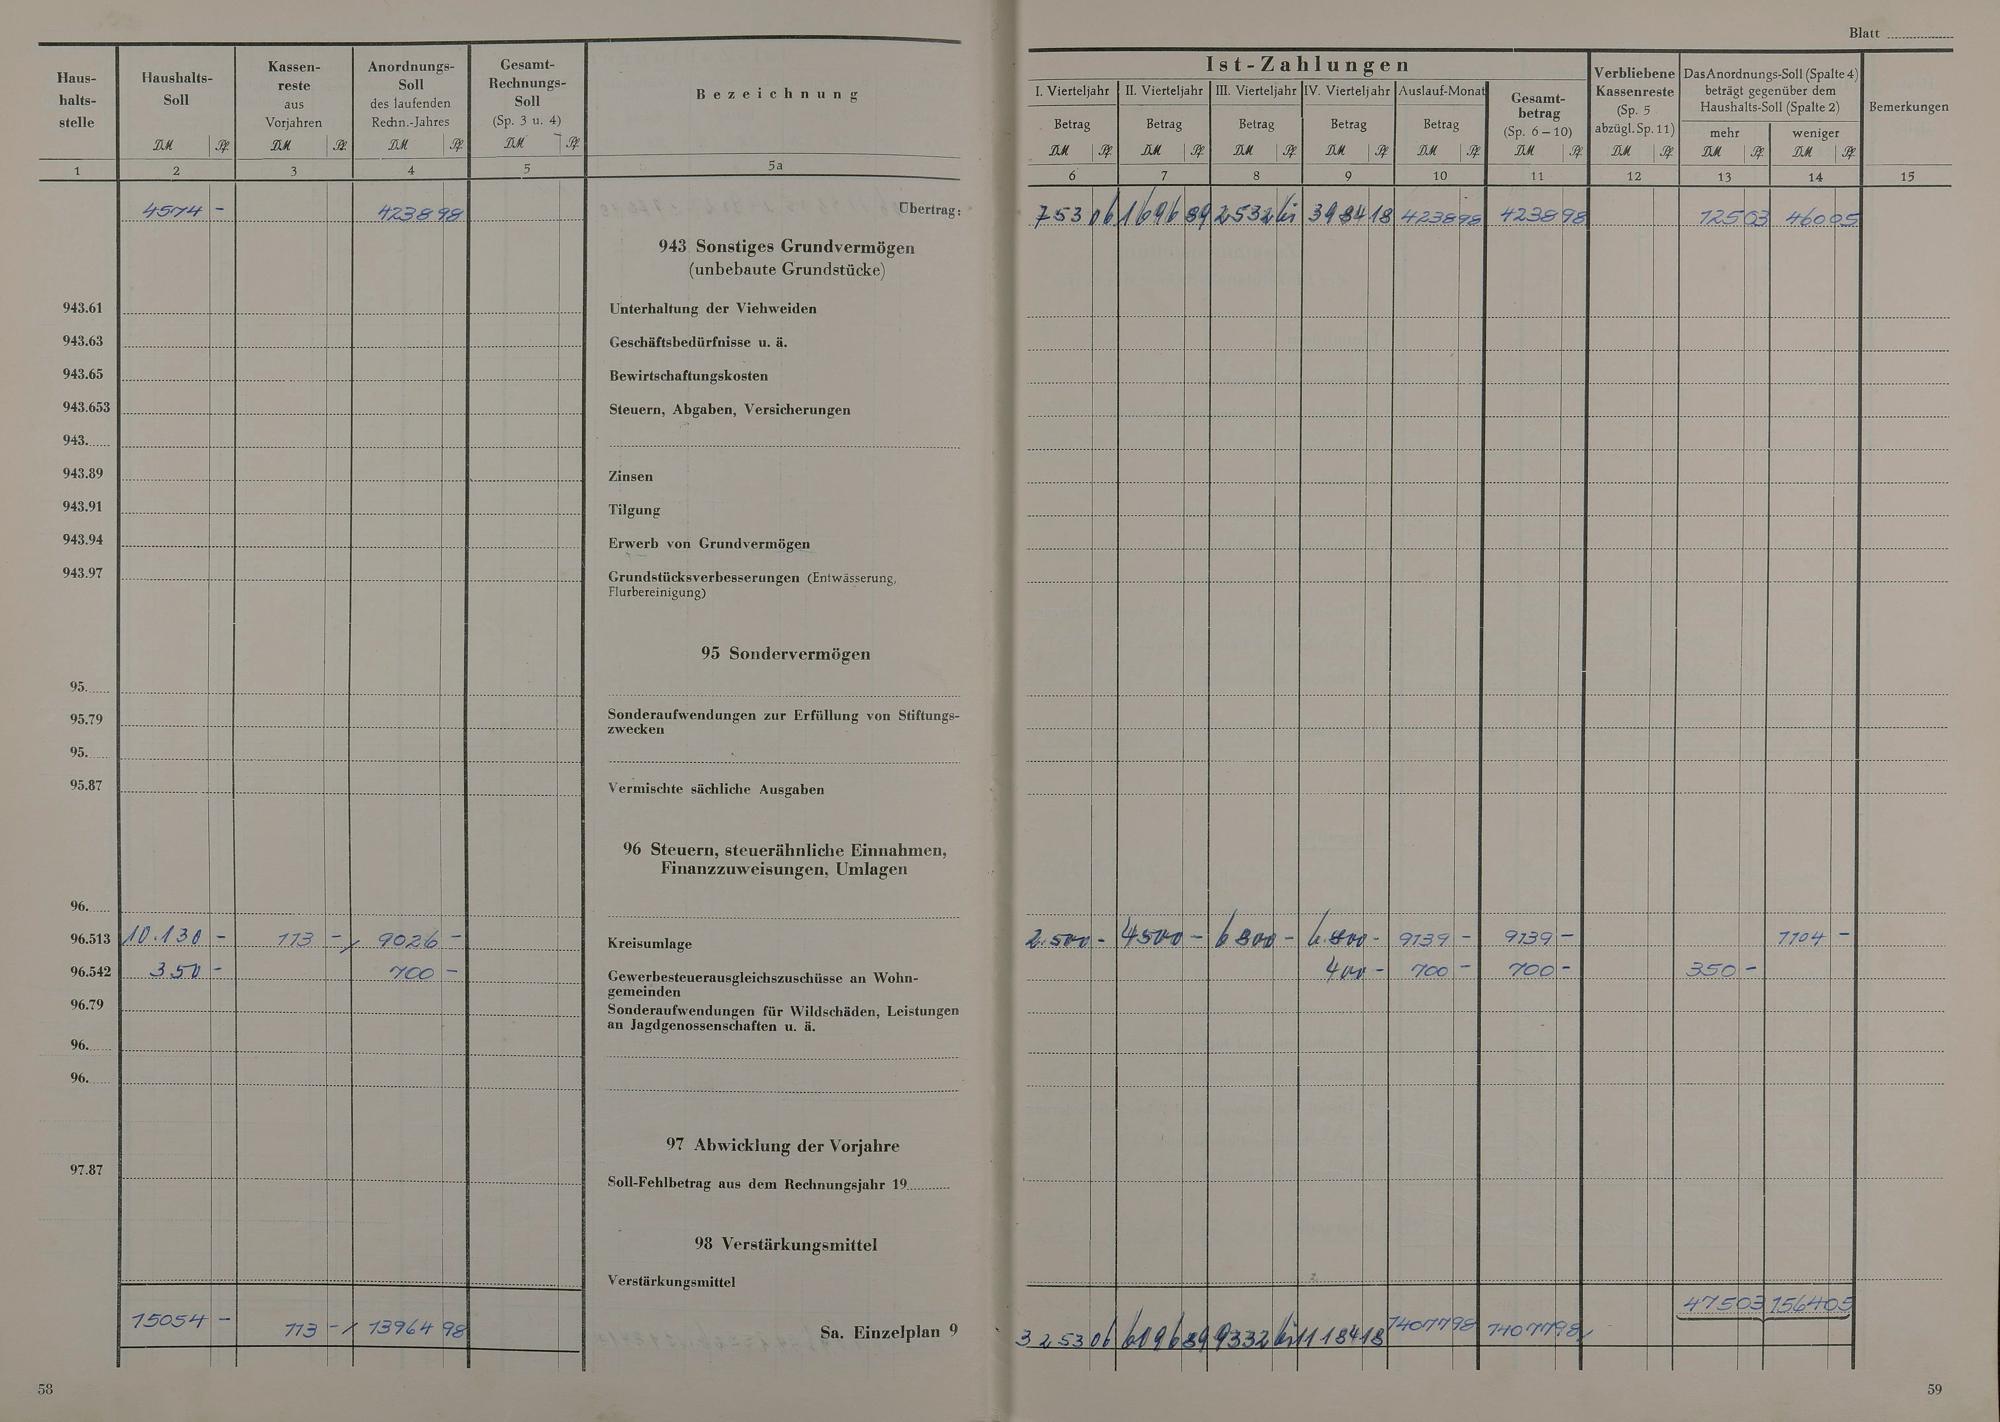 Blatt
Haus-
halts-
stelle
Haushalts-
Soll
DM Pf
Kassen-
reste
aus
Vorjahren
DM Pf
Anordnungs-
Soll
des laufenden
Rechn.-Jahres
DM Pf
Gesamt-
Rechnungs-
Soll
(Sp. 3 u. 4)
DM Pf
Bezeichnung
Ist-Zahlungen
I. Vierteljahr
Betrag
DM Pf
II. Vierteljahr
Betrag
DM Pf
III. Vierteljahr
Betrag
DM Pf
IV. Vierteljahr
Betrag
DM Pf
Auslauf-Monat
Betrag
DM Pf
Gesamt-
betrag
(Sp. 6 – 10)
DM Pf
Verbliebene
Kassenreste
(Sp. 5
abzügl. Sp. 11)
DM Pf
Das Anordnungs-Soll (Spalte 4)
beträgt gegenüber dem
Haushalts-Soll (Spalte 2)
mehr weniger
DM Pf DM Pf
Bemerkungen
1 2 3 4 5 5a 6 7 8 9 10 11 12 13 14 15
4574 - 4238 98 Übertrag: 753 06 1696 89 2532 3984 18 4238 98 4238 98 125 03 460 05
943 Sonstiges Grundvermögen
(unbebaute Grundstücke)
943.61 Unterhaltung der Viehweiden
943.63 Geschäftsbedürfnisse u. ä.
943.65 Bewirtschaftungskosten
943.653 Steuern, Abgaben, Versicherungen
943.
943.89 Zinsen
943.91 Tilgung
943.94 Erwerb von Grundvermögen
943.97 Grundstücksverbesserungen (Entwässerung,
Flurbereinigung)
95 Sondervermögen
95.
95.79 Sonderaufwendungen zur Erfüllung von Stiftungs-
zwecken
95.
95.87 Vermischte sächliche Ausgaben
96 Steuern, steuerähnliche Einnahmen,
Finanzzuweisungen, Umlagen
96.
96.513 10.130 - 113 - 9026 - Kreisumlage 2.500 - 4500 - 6800 - 6.800 - 9139 - 9139 - 1104 -
96.542 350 - 700 - Gewerbesteuerausgleichszuschüsse an Wohn- 400 - 700 - 700 - 350 -
gemeinden
96.79 Sonderaufwendungen für Wildschäden, Leistungen
an Jagdgenossenschaften u. ä.
96.
96.
97 Abwicklung der Vorjahre
97.87 Soll-Fehlbetrag aus dem Rechnungsjahr 19
98 Verstärkungsmittel
Verstärkungsmittel
475 03 1564 05
15054 - 113 - 13964 98 Sa. Einzelplan 9 3253 06 6196 89 9332 11184 18 14077 98 14077 98
58
59